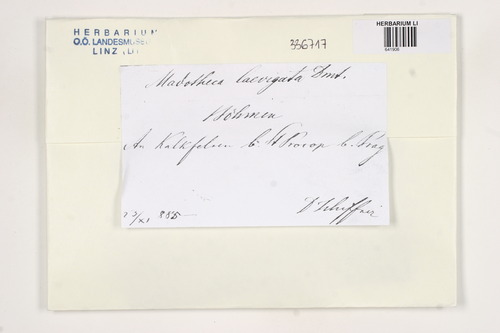 HERBARIUM
O.Ö. LANDESMUS
LINZ
336717
HERBARIUM LI
641906
Madotheca laevigata Dmt.
Böhmen
An Kalkfelsen b. St Procop b. Prag
XI
D Schiffner